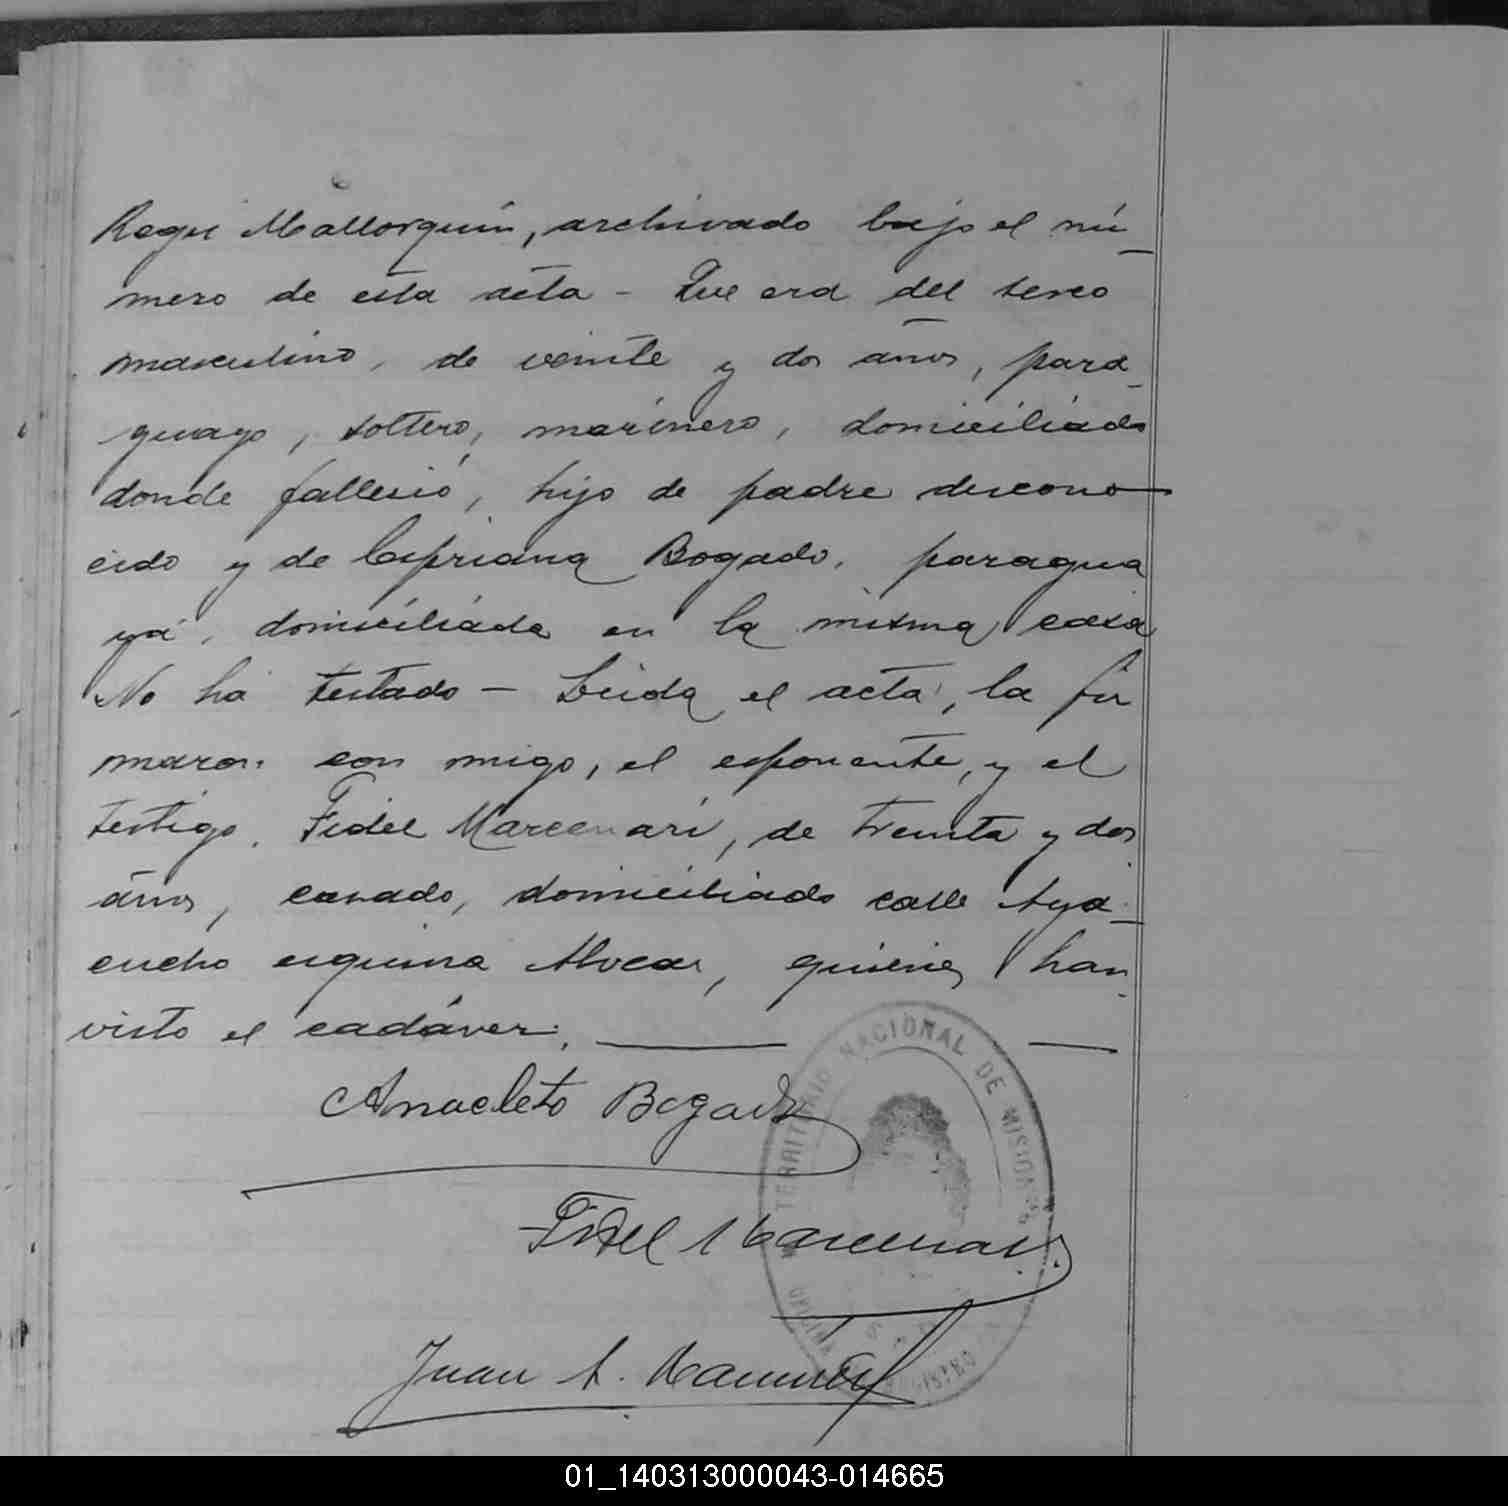 Roger Mallorquín, archivado bajo el nú-
mero de esta acta - Que era del sexo
masculino, de veinte y dos años, para-
guayo, soltero, marinero, domiciliado
donde fallesió, hijo de padre descono-
cido y de Cipriana Bogado, paragua
ya, domiciliada en la misma casa
No ha testado - Leida el acta, la fir
maron con migo, el esponente, y el
testigo, Fidel Marcenari, de treinta y dos
años, casado, domiciliado calle Aya-
cucho esquina Alvear, quienes han
visto el cadáver.
Anacleto Bogado
Fidel Marcenari
Juan A.
TERRITORIO NACIONAL DE MISIONES
01_140313000043-014665